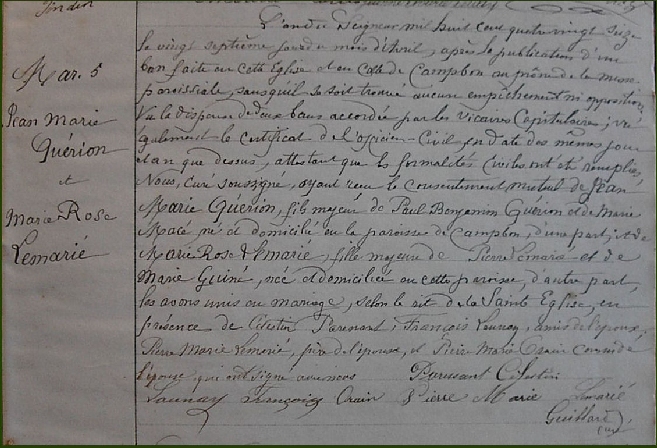 L'an du Seigneur mil huit cent quatre vingt seize
le vingt septième jour du mois d'Avril, après la publication d'un
ban faite en cette Eglise et en celle de Campbon au prône de la messe
Mar. 5
paroissiale, sans qu'il se soit trouvé aucun empêchement ni opposition,
Vu la dispense de deux bans accordée par les Vicaires Capitulaires; vu
Jean Marie
Guérion
et
Marie Rose
Lemarié
également le certificat de l'Officier-Civil, en date des mêmes jour
et an que dessus, attestant que les formalités Civiles ont été remplies,
Nous, curé soussigné, ayant reçu le consentement mutuel de Jean
Marie Guérion, fils majeur de Paul Benjamin Guérion et de Marie
né et domicilié en la paroisse de Campbon, d'une part, et de
Marie Rose Lemarié, fille majeure de Pierre Lemarié et de
Marie Guiné, née et domiciliée en cette paroisse, d'autre part,
les avons unis en mariage, selon le rit de la Sainte Eglise, en
présence de Célestin François Launay, amis de l'époux,
Pierre Marie Lemarié, père de l'épouse, et Pierre Marie Orain cousin de
l'épouse, qui ont signé avec nous Célestin
Launay François Orain Pierre Marie Lemarié
curé